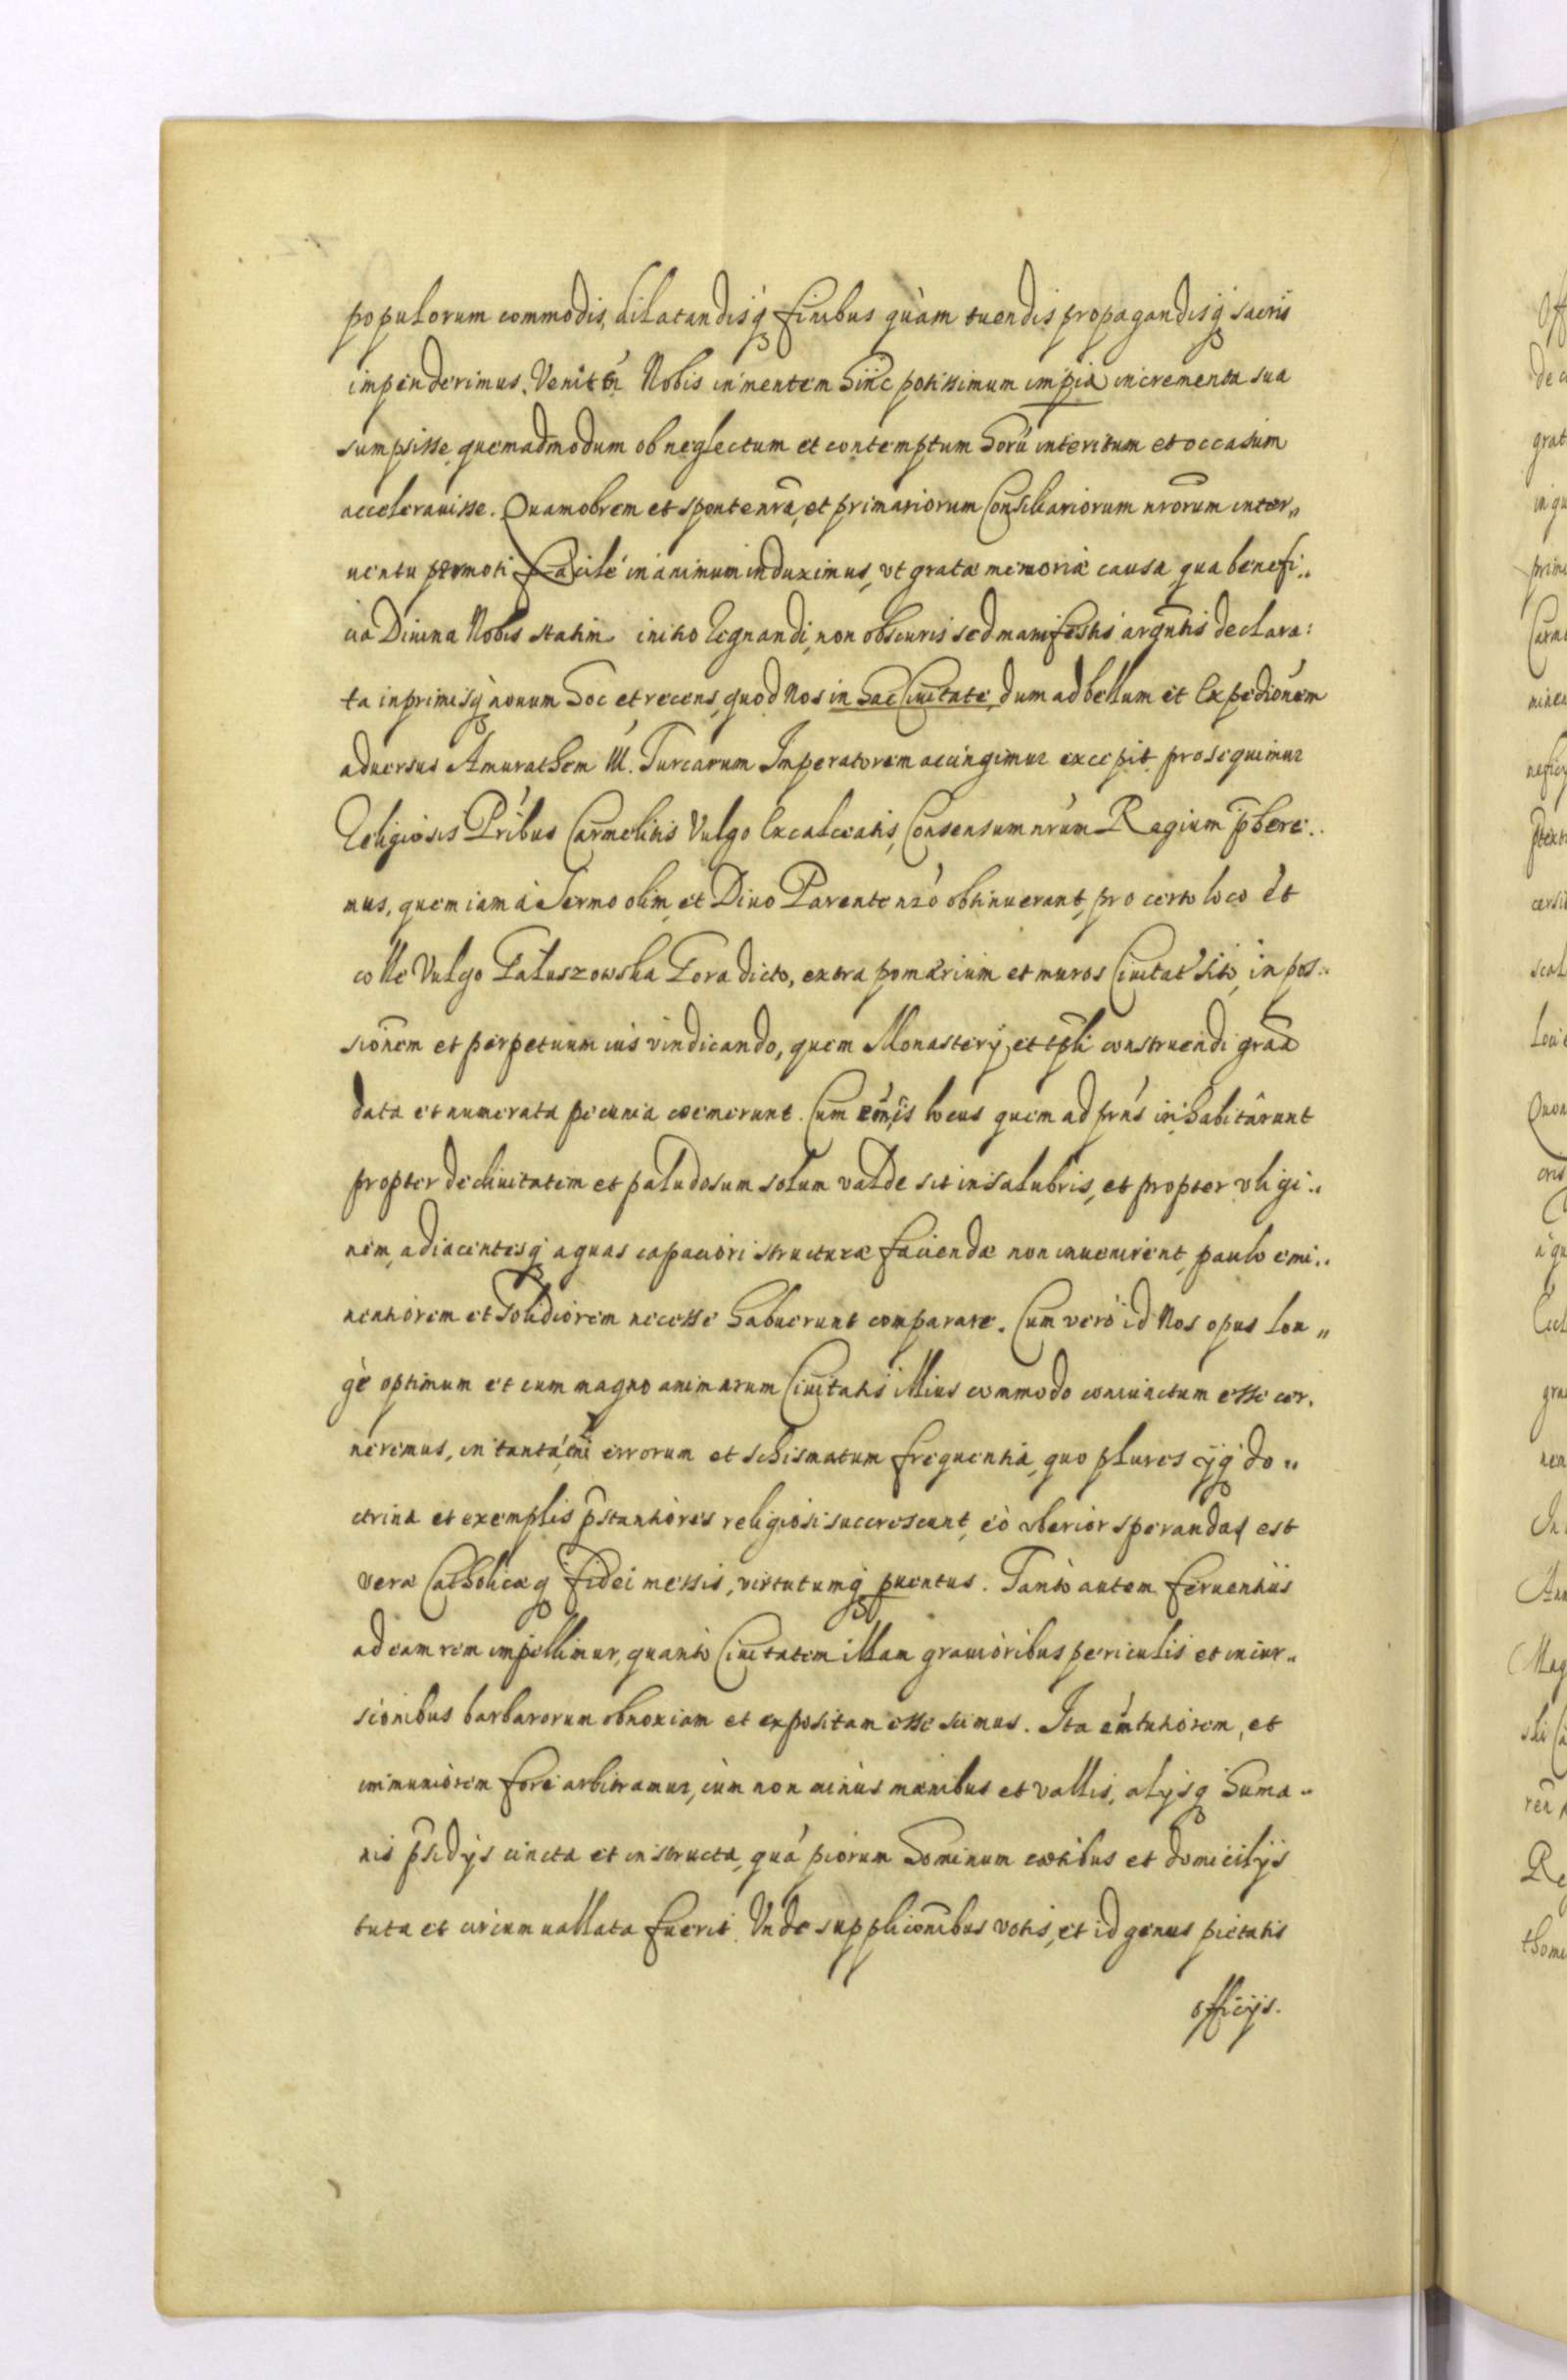 populorum commodis, dilatandisq́ꝫ finibus quàm tuendis propagandisq́ꝫ sacris
impenderimus. Venit tń Nobis in mentem hinc potissimum impia incrementa sua
sumpsisse, quemadmodum ob neglectum et contemptum horũ interitum et occasum
accelerauisse. Quamobrem et sponte nrã, et primariorum Consiliariorum nrorum inter„
uentu permoti facilè in animum induximus, vt gratæ memoriæ causa, qua benefi„
cia Diuina Nobis statim initio Regnandi, non obscuris sed manifestis argũtis declara:
ta inprimisq́ꝫ nouum hoc et recens, quod Nos in hac Ciuitate, dum ad bellum et Expedionẽm
aduersus Amurathem IV. Turcarum Imperatorem accingimur excepit prosequimur
Religiosis Prībus Carmelitis Vulgo Excalceatis, Consensum nrũm Regium p̃bere„
mus, quem iam à Sermo olim, et Diuo Parente nrõ obtinuerant, pro certo loco et
colle Vulgo Pałuszowska Gora dicto, extra pomærium et muros Ciuitat' sito, in pos„
sionẽm et perpetuum ius vindicando, quem Monasterij et tp̃li construendi grãa
data et numerata pecunia coemerunt. Cum eñ is locus quem ad prñs inhabitârunt
propter decliuitatem et paludosum solum valde sit insalubris, et propter vligi„
nem, adiacentesq́ꝫ aquas capaciori structuræ faciendæ non inuenirent, paulo emi„
nentiorem et solidiorem necesse habuerunt comparare. Cum verò id Nos opus lon„
gè optimum et cum magno animarum Ciuitatis illius commodo coniunctum esse cer„
neremus, in tantá eñi errorum et schismatum frequentia, quo plures ijq́ꝫ do„
ctrina et exemplis p̃stantiores religiosi succrescunt, eò vberior speranda est
veræ Catholicæq́ꝫ fidei messis, virtutumq́ꝫ puentus. Tantò autem feruentiùs
ad eam rem impellimur, quantò Ciuitatem illam grauioribus periculis et incur„
sionibus barbarorum obnoxiam et expositam esse scimus. Ita em̃ tutiorem, et
immuniorem fore arbitramur, cùm non minùs mænibus et vallis, alijsq́ꝫ huma„
nis p̃sidijs cincta et instructa, quá piorum hominum cœtibus et domicilijs
tuta et circumuallata fuerit. Vnde supplicionĩbus votis, et id genus pietatis
officijs.